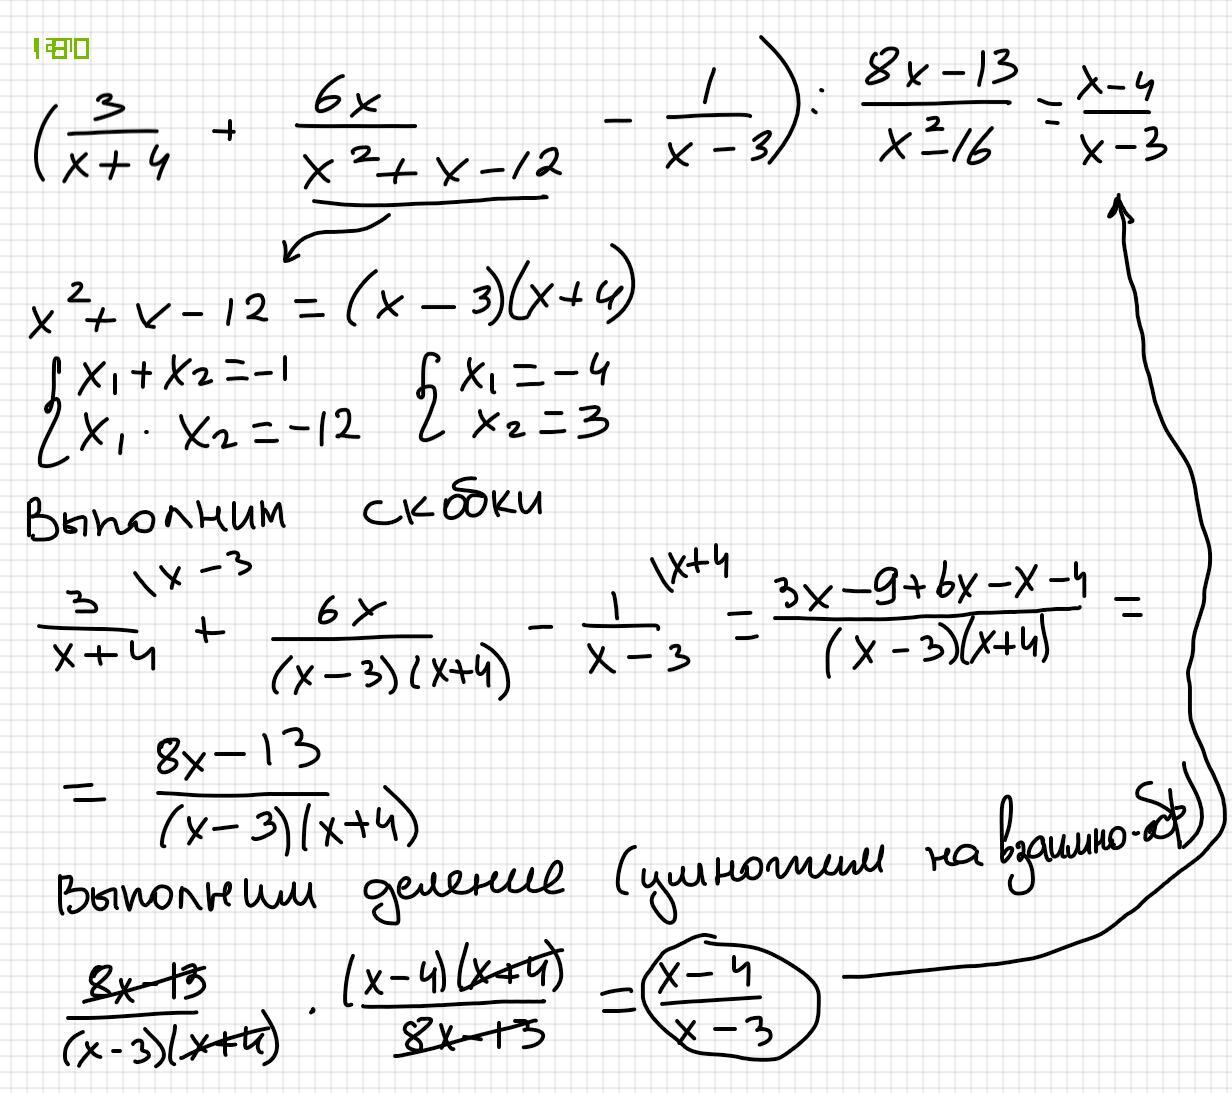 (3/(x+4) + 6x/(x²+x-12) - 1/(x-3)) : (8x-13)/(x²-16) = (x-4)/(x-3)
x²+x-12 = (x-3)(x+4)
{ x₁+x₂=-1 { x₁=-4
{ x₁·x₂=-12 { x₂=3
Выполним скобки
3/(x+4) \x-3 + 6x/((x-3)(x+4)) - 1/(x-3) \x+4 = (3x-9+6x-x-4)/((x-3)(x+4)) =
= (8x-13)/((x-3)(x+4))
Выполним деление (умножим на взаимно-обр)
(8x-13)/((x-3)(x+4)) · ((x-4)(x+4))/(8x-13) = (x-4)/(x-3)